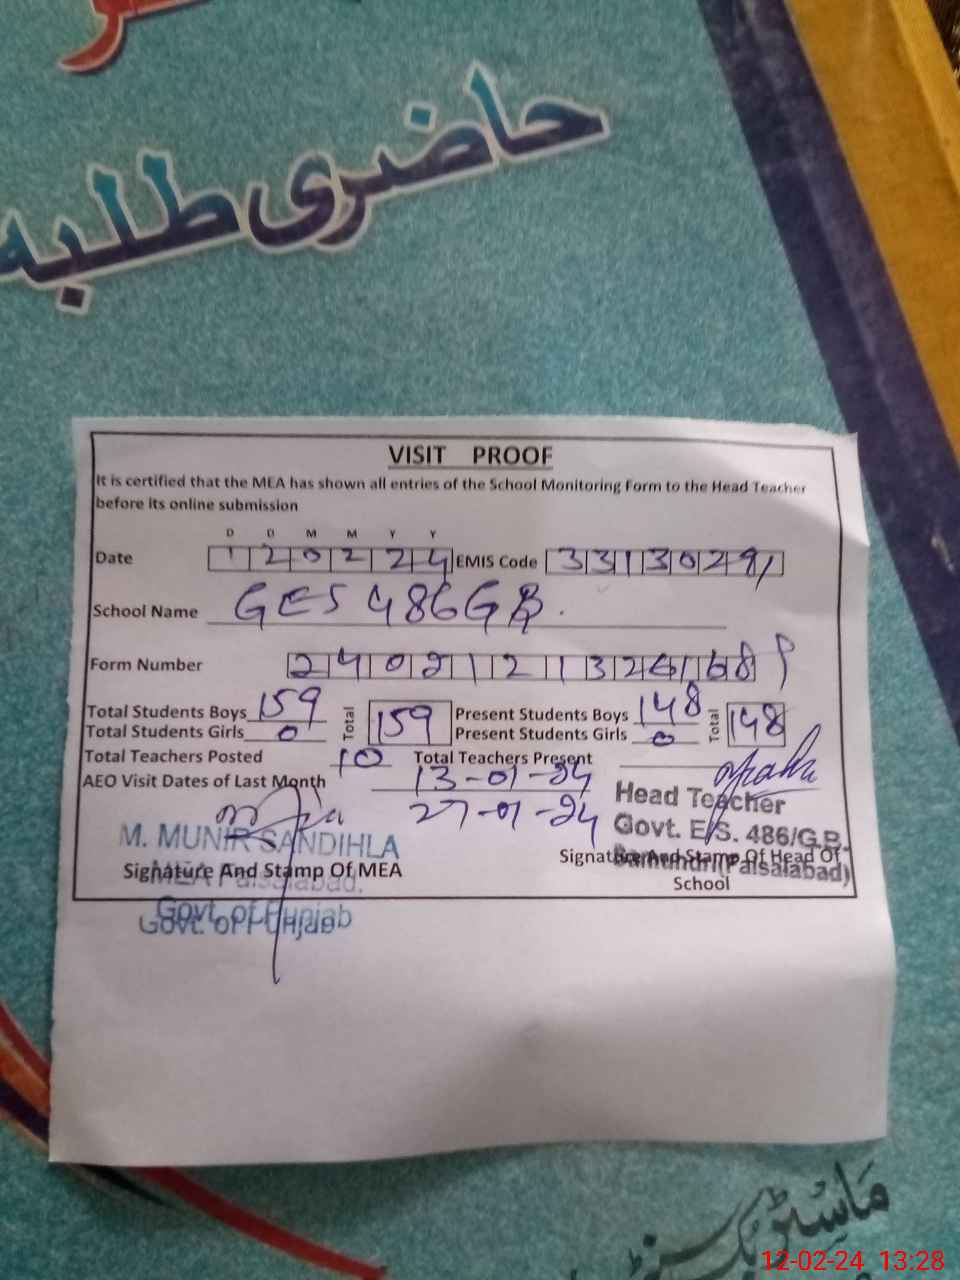 حاضری طلبہ
VISIT PROOF
It is certified that the MEA has shown all entries of the School Monitoring Form to the Head Teacher
before its online submission
D D M M Y Y
Date 120224 EMIS Code 33130291
School Name GES 486GB.
Form Number
Total Students Boys 159 Total 159 Present Students Boys 148 Total 148
Total Students Girls 0 Present Students Girls 0
Total Teachers Posted 10 Total Teachers Present
AEO Visit Dates of Last Month 13-01-24
27-01-24
Head Teacher
Govt. E/S. 486/G.B.
Samundri (Faisalabad)
M. MUNIR SANDIHLA
MEA Faisalabad.
Govt. of Punjab
Signature And Stamp Of MEA
Signature And Stamp Of Head Of
School
12-02-24 13:28